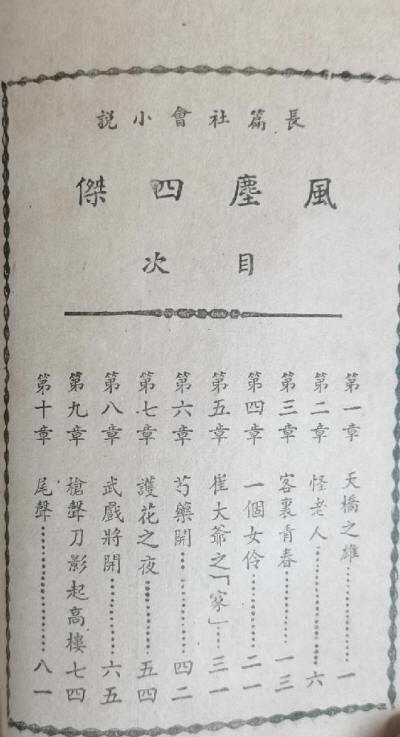 長篇社會小說
風塵四傑
目次
第一章 天橋之雄…………一
第二章 怪老人…………六
第三章 客裏青春…………一三
第四章 一個女伶…………二一
第五章 崔大爺之「家」……三一
第六章 芍藥開…………四二
第七章 護花之夜…………五四
第八章 武戲將開…………六五
第九章 槍聲刀影起高樓 七四
第十章 尾聲…………八一